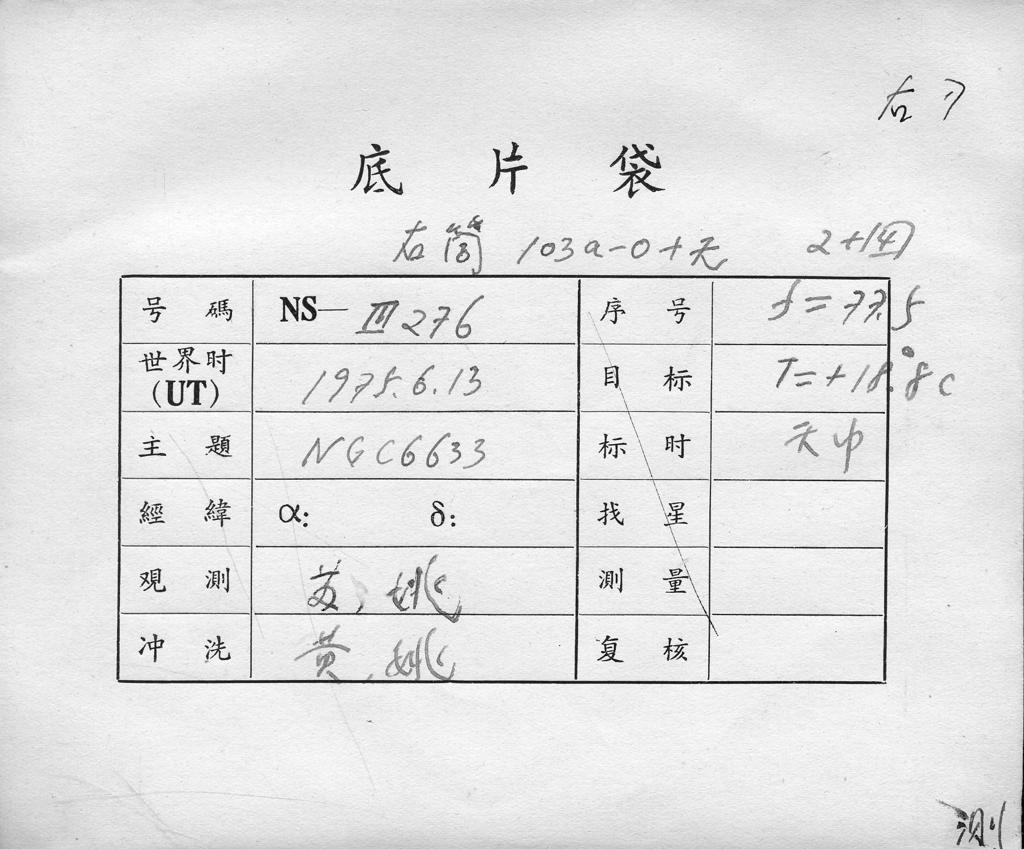 右
底片袋
右筒 103a-O+天 2+四
号碼 NS—III276 序号 f=77.5
世界时(UT) 1975.6.13 目标 T=+18.8°C
主題 NGC6633 标时 天中
經緯 α: δ: 找星
观測 苏,姚 測量
冲洗 黄,姚 复核
测